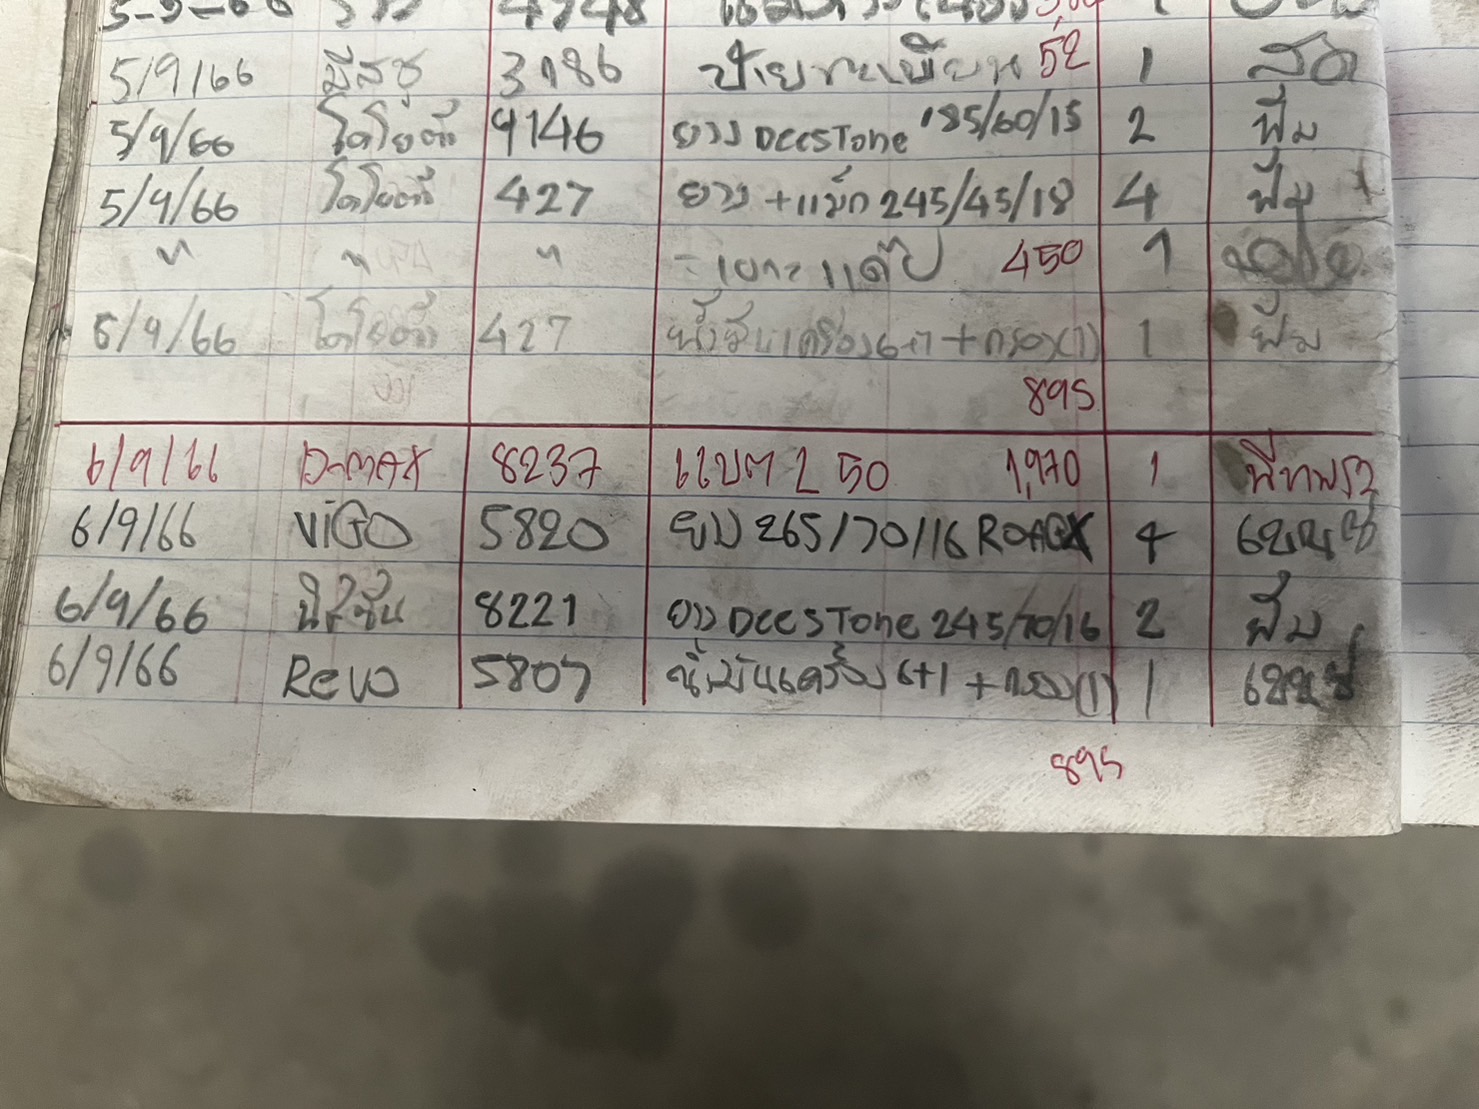 5-9-66 4748
5/9/66 อีซูซุ 3186 ป้ายทะเบียน 52 1 สด
5/9/66 โตโยต้า 9146 ยาง Deestone 185/60/15 2 ฟิม
5/9/66 โตโยต้า 427 ยาง + แม็ก 245/45/18 4 ฟิม
" " " 450 1
5/9/66 โตโยต้า 427 น้ำมันเครื่อง 6+1 + กรอง(1) 1 ฟิม
895
6/9/66 D-MAX 8237 แบต L 50 1,970 1
6/9/66 ViGO 5820 ยาง 265/70/16 4
6/9/66 นิสสัน 8221 ยาง Deestone 245/70/16 2 ฟิม
6/9/66 Revo 5807 น้ำมันเครื่อง 6+1 + กรอง(1) 1
895